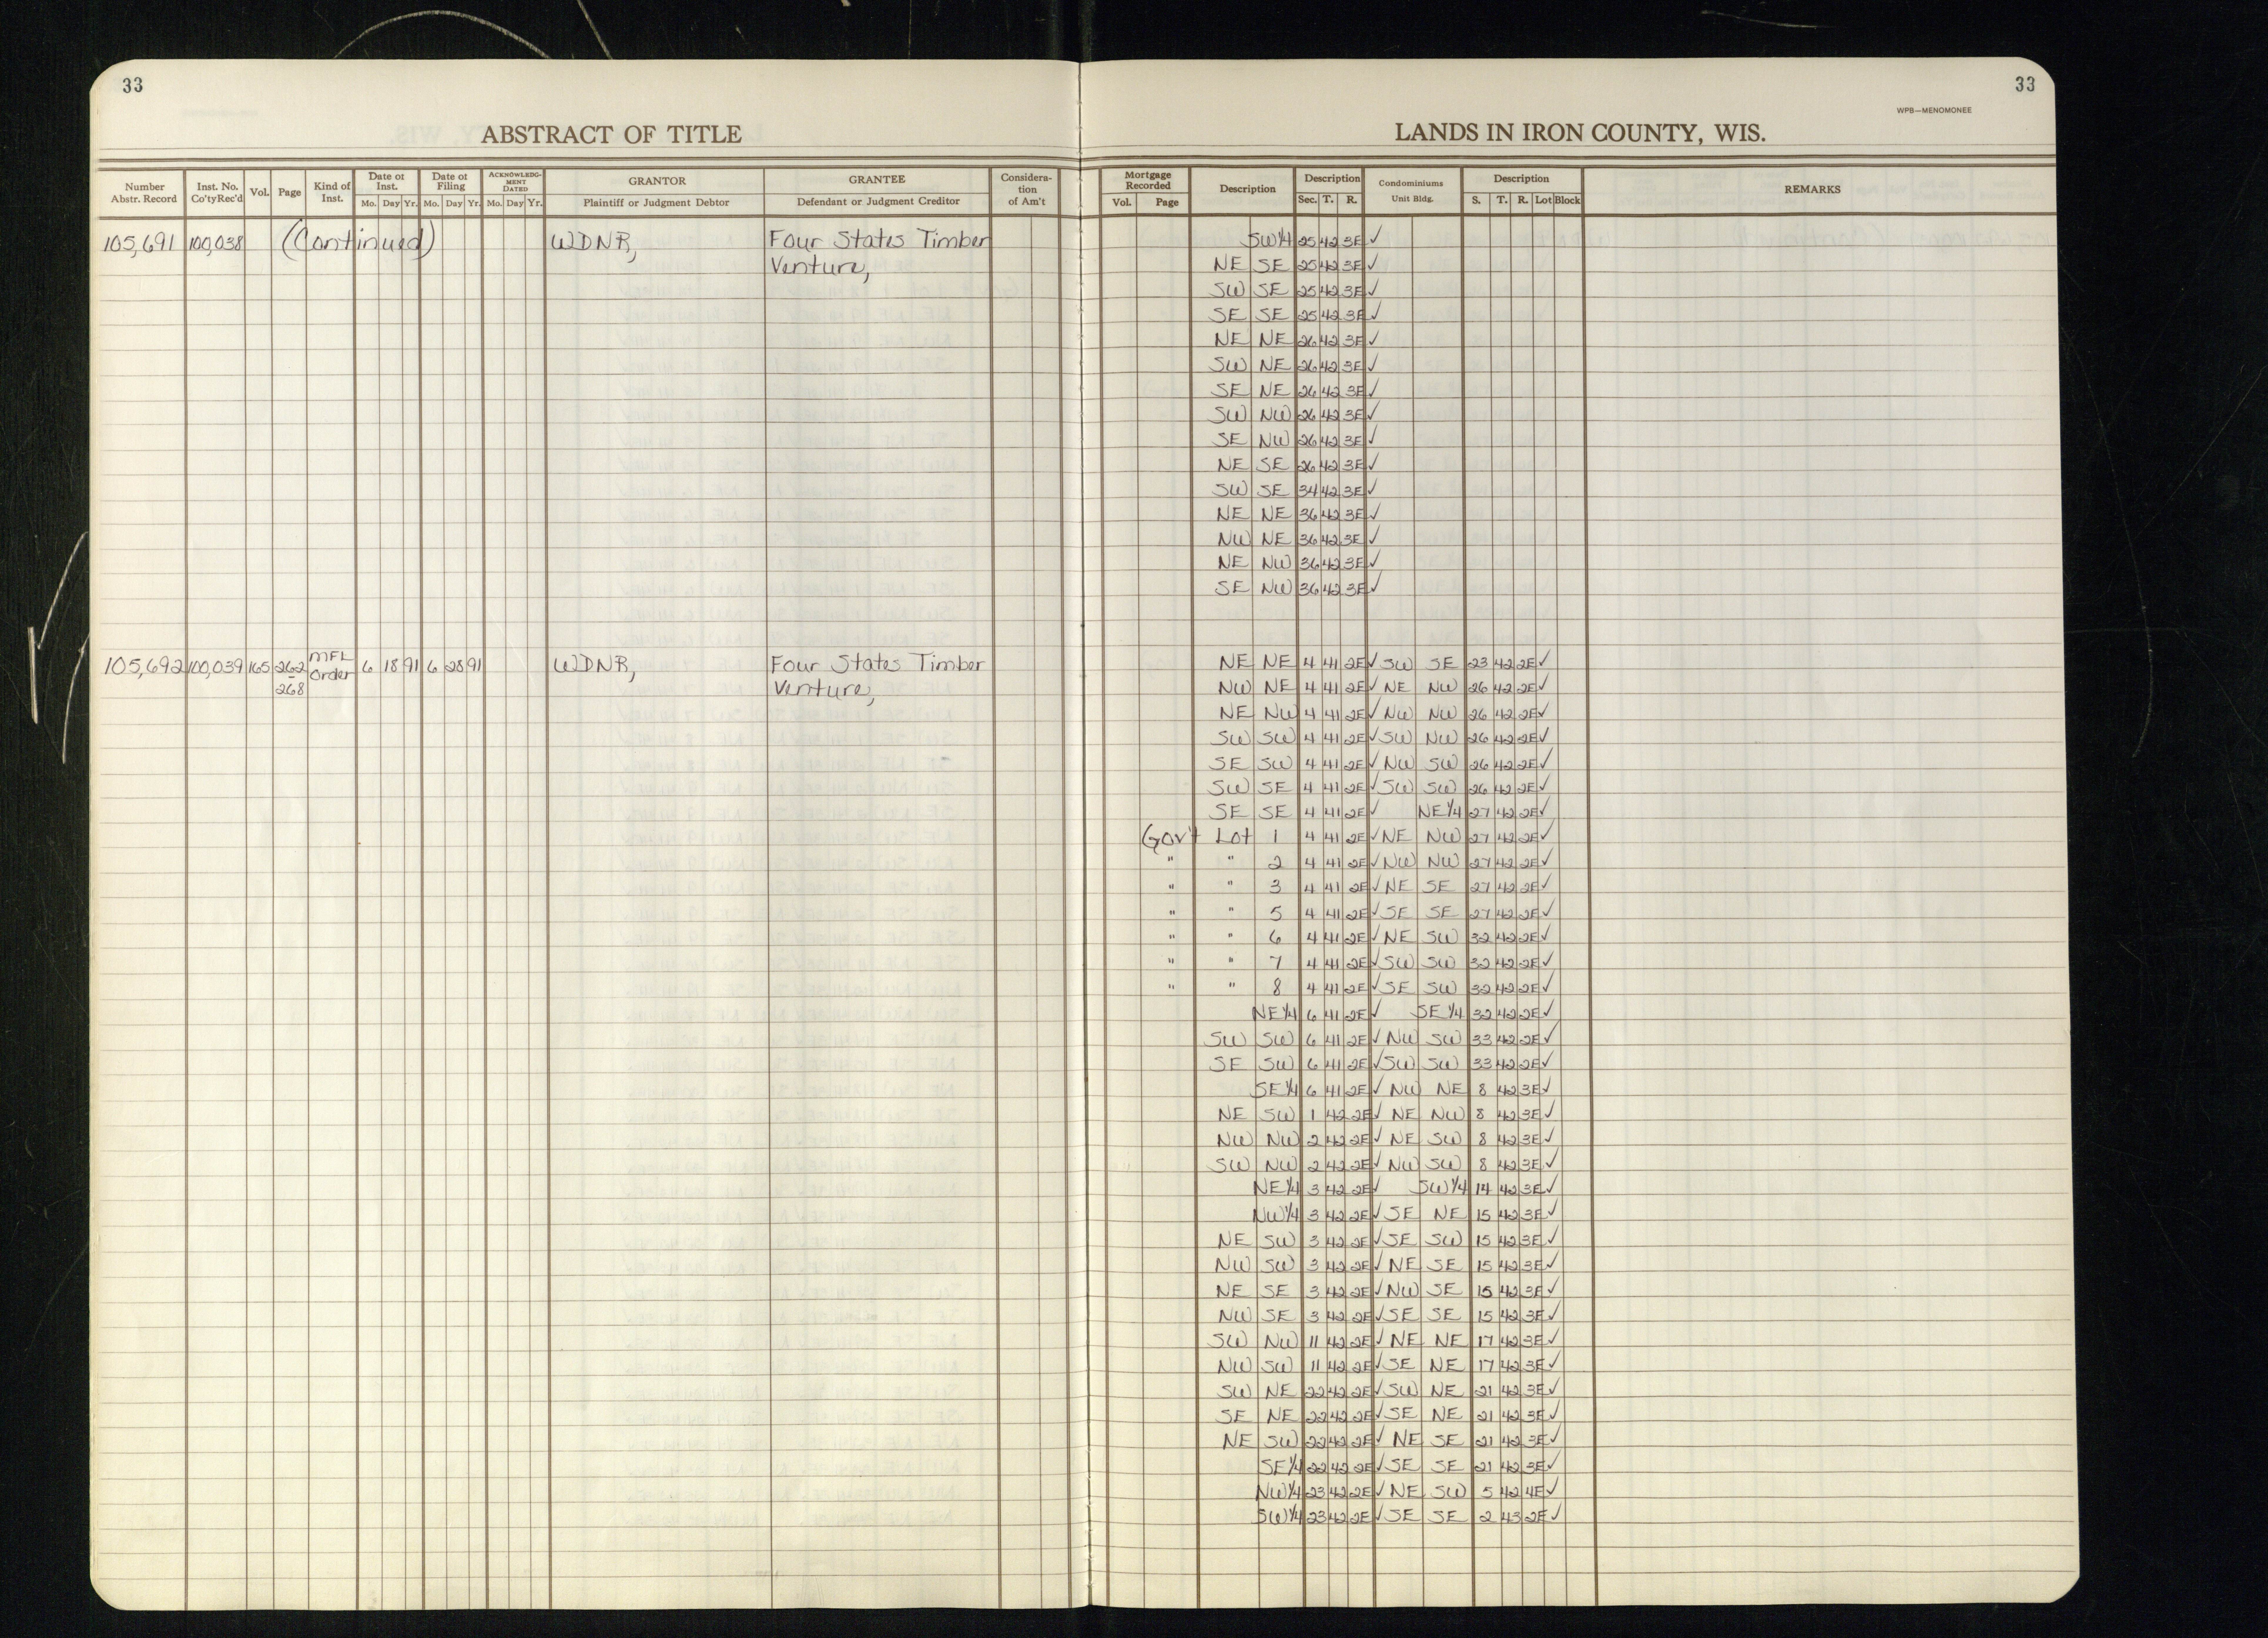 33
33
WPB—MENOMONEE
ABSTRACT OF TITLE
LANDS IN IRON COUNTY, WIS.
Number Abstr. Record Inst. No. Co'ty Rec'd Vol. Page Kind of Inst. Date of Inst. Mo. Day Yr. Date of Filing Mo. Day Yr. ACKNOWLEDGMENT DATED Mo. Day Yr. GRANTOR Plaintiff or Judgment Debtor GRANTEE Defendant or Judgment Creditor Consideration of Am't Mortgage Recorded Vol. Page Description Description Sec. T. R. Condominiums Unit Bldg. Description S. T. R. Lot Block REMARKS
105,691 100,038 (Continued) WDNR, Four States Timber SW¼ 25 42 3E ✓
Venture, NE SE 25 42 3E ✓
SW SE 25 42 3E ✓
SE SE 25 42 3E ✓
NE NE 26 42 3E ✓
SW NE 26 42 3E ✓
SE NE 26 42 3E ✓
SW NW 26 42 3E ✓
SE NW 26 42 3E ✓
NE SE 26 42 3E ✓
SW SE 34 42 3E ✓
NE NE 36 42 3E ✓
NW NE 36 42 3E ✓
NE NW 36 42 3E ✓
SE NW 36 42 3E ✓
105,692 100,039 165 262-268 MFL Order 6 18 91 6 28 91 WDNR, Four States Timber NE NE 4 41 2E ✓ SW SE 23 42 2E ✓
Venture, NW NE 4 41 2E ✓ NE NW 26 42 2E ✓
NE NW 4 41 2E ✓ NW NW 26 42 2E ✓
SW SW 4 41 2E ✓ SW NW 26 42 2E ✓
SE SW 4 41 2E ✓ NW SW 26 42 2E ✓
SW SE 4 41 2E ✓ SW SW 26 42 2E ✓
SE SE 4 41 2E ✓ NE¼ 27 42 2E ✓
Gov't Lot 1 4 41 2E ✓ NE NW 27 42 2E ✓
" " 2 4 41 2E ✓ NW NW 27 42 2E ✓
" " 3 4 41 2E ✓ NE SE 27 42 2E ✓
" " 5 4 41 2E ✓ SE SE 27 42 2E ✓
" " 6 4 41 2E ✓ NE SW 32 42 2E ✓
" " 7 4 41 2E ✓ SW SW 32 42 2E ✓
" " 8 4 41 2E ✓ SE SW 32 42 2E ✓
NE¼ 6 41 2E ✓ SE¼ 32 42 2E ✓
SW SW 6 41 2E ✓ NW SW 33 42 2E ✓
SE SW 6 41 2E ✓ SW SW 33 42 2E ✓
SE¼ 6 41 2E ✓ NW NE 8 42 3E ✓
NE SW 1 42 2E ✓ NE NW 8 42 3E ✓
NW NW 2 42 2E ✓ NE SW 8 42 3E ✓
SW NW 2 42 2E ✓ NW SW 8 42 3E ✓
NE¼ 3 42 2E ✓ SW¼ 14 42 3E ✓
NW¼ 3 42 2E ✓ SE NE 15 42 3E ✓
NE SW 3 42 2E ✓ SE SW 15 42 3E ✓
NW SW 3 42 2E ✓ NE SE 15 42 3E ✓
NE SE 3 42 2E ✓ NW SE 15 42 3E ✓
NW SE 3 42 2E ✓ SE SE 15 42 3E ✓
SW NW 11 42 2E ✓ NE NE 17 42 3E ✓
NW SW 11 42 2E ✓ SE NE 17 42 3E ✓
SW NE 22 42 2E ✓ SW NE 21 42 3E ✓
SE NE 22 42 2E ✓ SE NE 21 42 3E ✓
NE SW 22 42 2E ✓ NE SE 21 42 3E ✓
SE¼ 22 42 2E ✓ SE SE 21 42 3E ✓
NW¼ 23 42 2E ✓ NE SW 5 42 4E ✓
SW¼ 23 42 2E ✓ SE SE 2 43 2E ✓